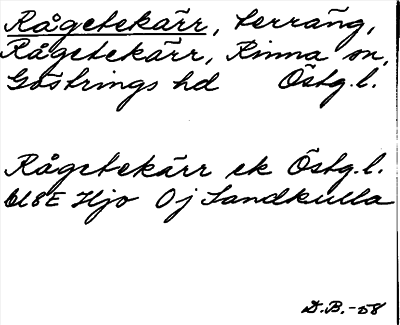 Rågetekärr, terräng,
Rågetekärr, Rinna sn,
Göstrings hd Östg.l.
Rågetekärr ek Östg.l.
8E Hjo 0j Sandkulla
D.B.-58